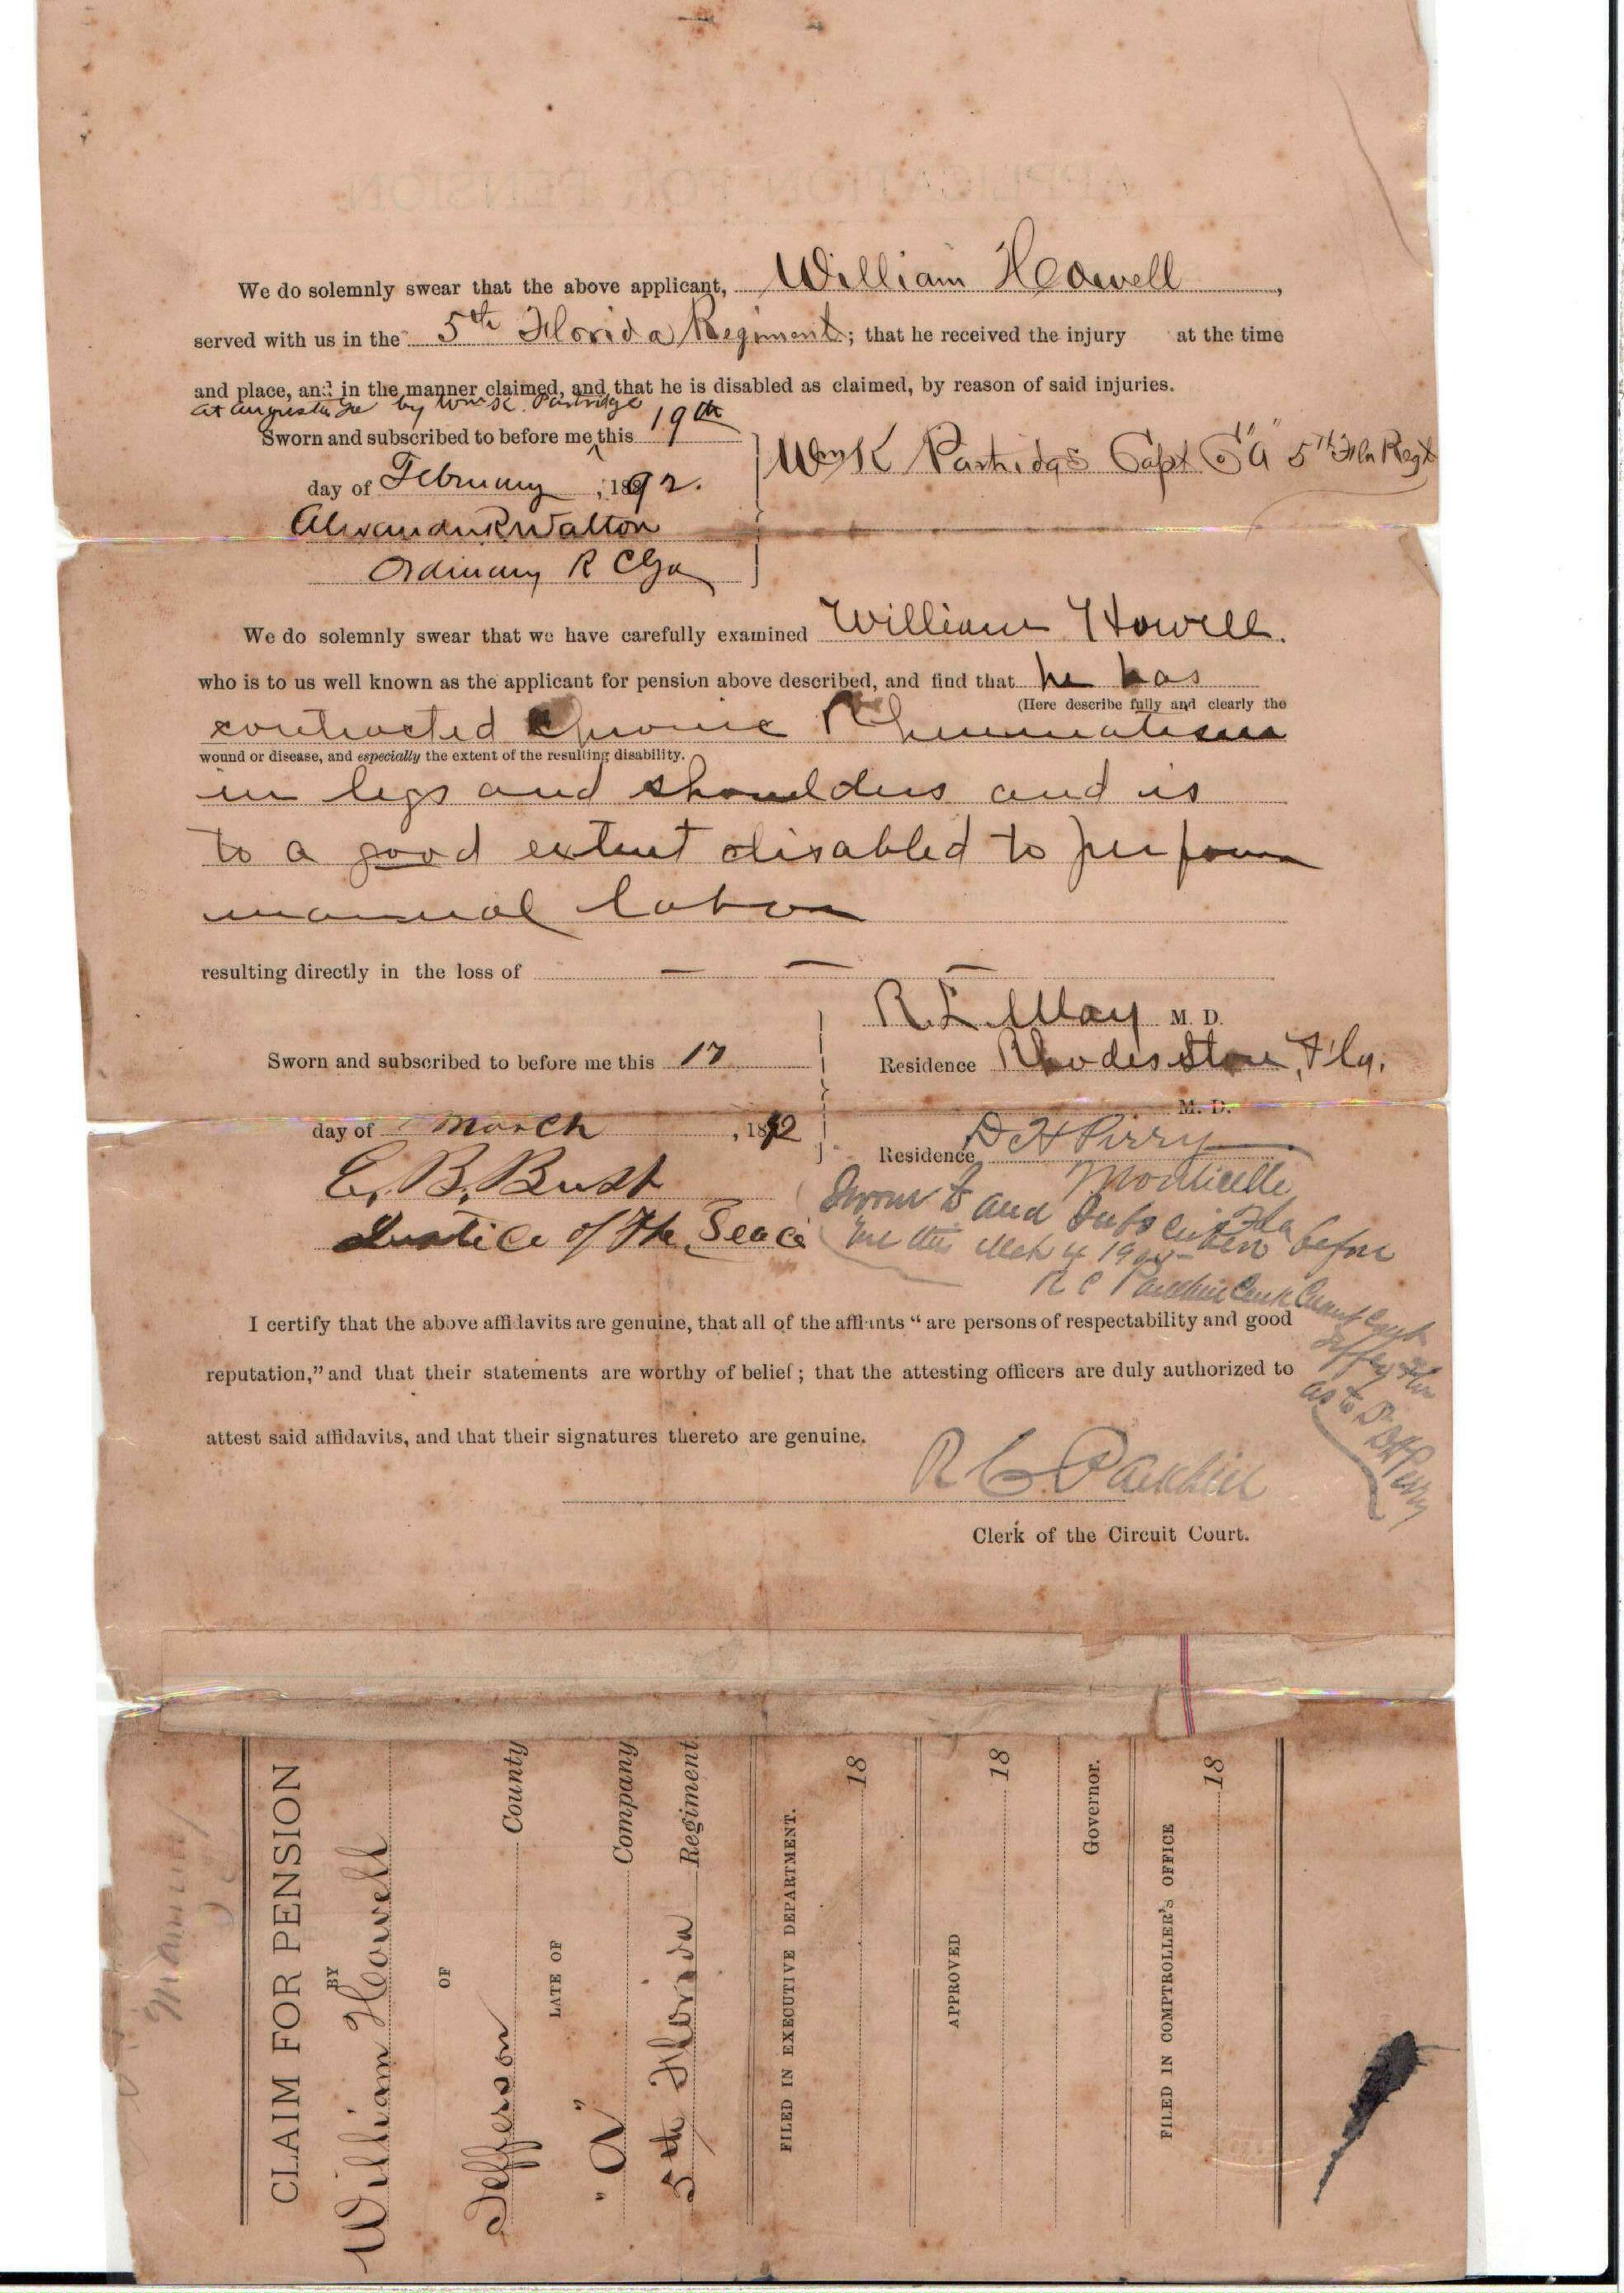 APPLICATION FOR PENSION
We do solemnly swear that the above applicant, William Howell,
served with us in the 5th Florida Regiment; that he received the injury at the time
and place, and in the manner claimed, and that he is disabled as claimed, by reason of said injuries.
at Augusta Ga by Wm K. Partridge
Sworn and subscribed to before me this 19th
Wm K Partridge Capt Co "A" 5th Fla Regt
day of February, 1892.
Alexander R Walton
Ordinary R C Ga
We do solemnly swear that we have carefully examined William Howell.
who is to us well known as the applicant for pension above described, and find that he has
(Here describe fully and clearly the
contracted Chronic Rheumatism
wound or disease, and especially the extent of the resulting disability.
in legs and shoulders and is
to a good extent disabled to perform
manual labor
resulting directly in the loss of — — —
R. L. May M. D.
Sworn and subscribed to before me this 17
Residence Rhodes Store, Fla.
M. D.
day of March, 1892
D H Perry
Residence
Monticello
Fla
E. B. Bust
Justice of the Peace
Sworn to and Subscribed before
me this Mch 4 19
R C Parkhill Clerk Circuit Court
as to D H Perry
I certify that the above affidavits are genuine, that all of the affiants "are persons of respectability and good
reputation," and that their statements are worthy of belief; that the attesting officers are duly authorized to
attest said affidavits, and that their signatures thereto are genuine.
R C Parkhill
Clerk of the Circuit Court.
CLAIM FOR PENSION
BY
William Howell
OF
Jefferson County
LATE OF
"A" Company
5th Florida Regiment
FILED IN EXECUTIVE DEPARTMENT.
18
APPROVED
18
Governor.
FILED IN COMPTROLLER'S OFFICE
18